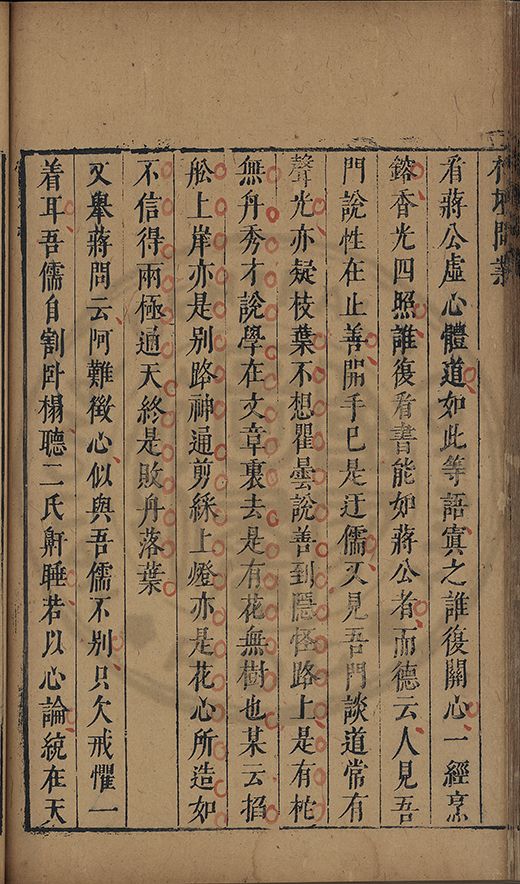 榕壇問業
看蔣公虛心體道如此等語寘之誰復關心一經烹
鎔香光四照誰復看書能如蔣公者而德云人見吾
門說性在止善開手巳是迂儒又見吾門談道常有
聲光亦疑枝葉不想瞿曇說善到隱怪路上是有柁
無舟秀才說學在文章裏去是有花無樹也某云掐
舩上岸亦是别路神通剪綵上燈亦是花心所造如
不信得兩極通天終是敗舟落葉
又舉蔣問云阿難徵心似與吾儒不别只欠戒懼一
着耳吾儒自割卧榻聽二氏鼾睡若以心論統在天